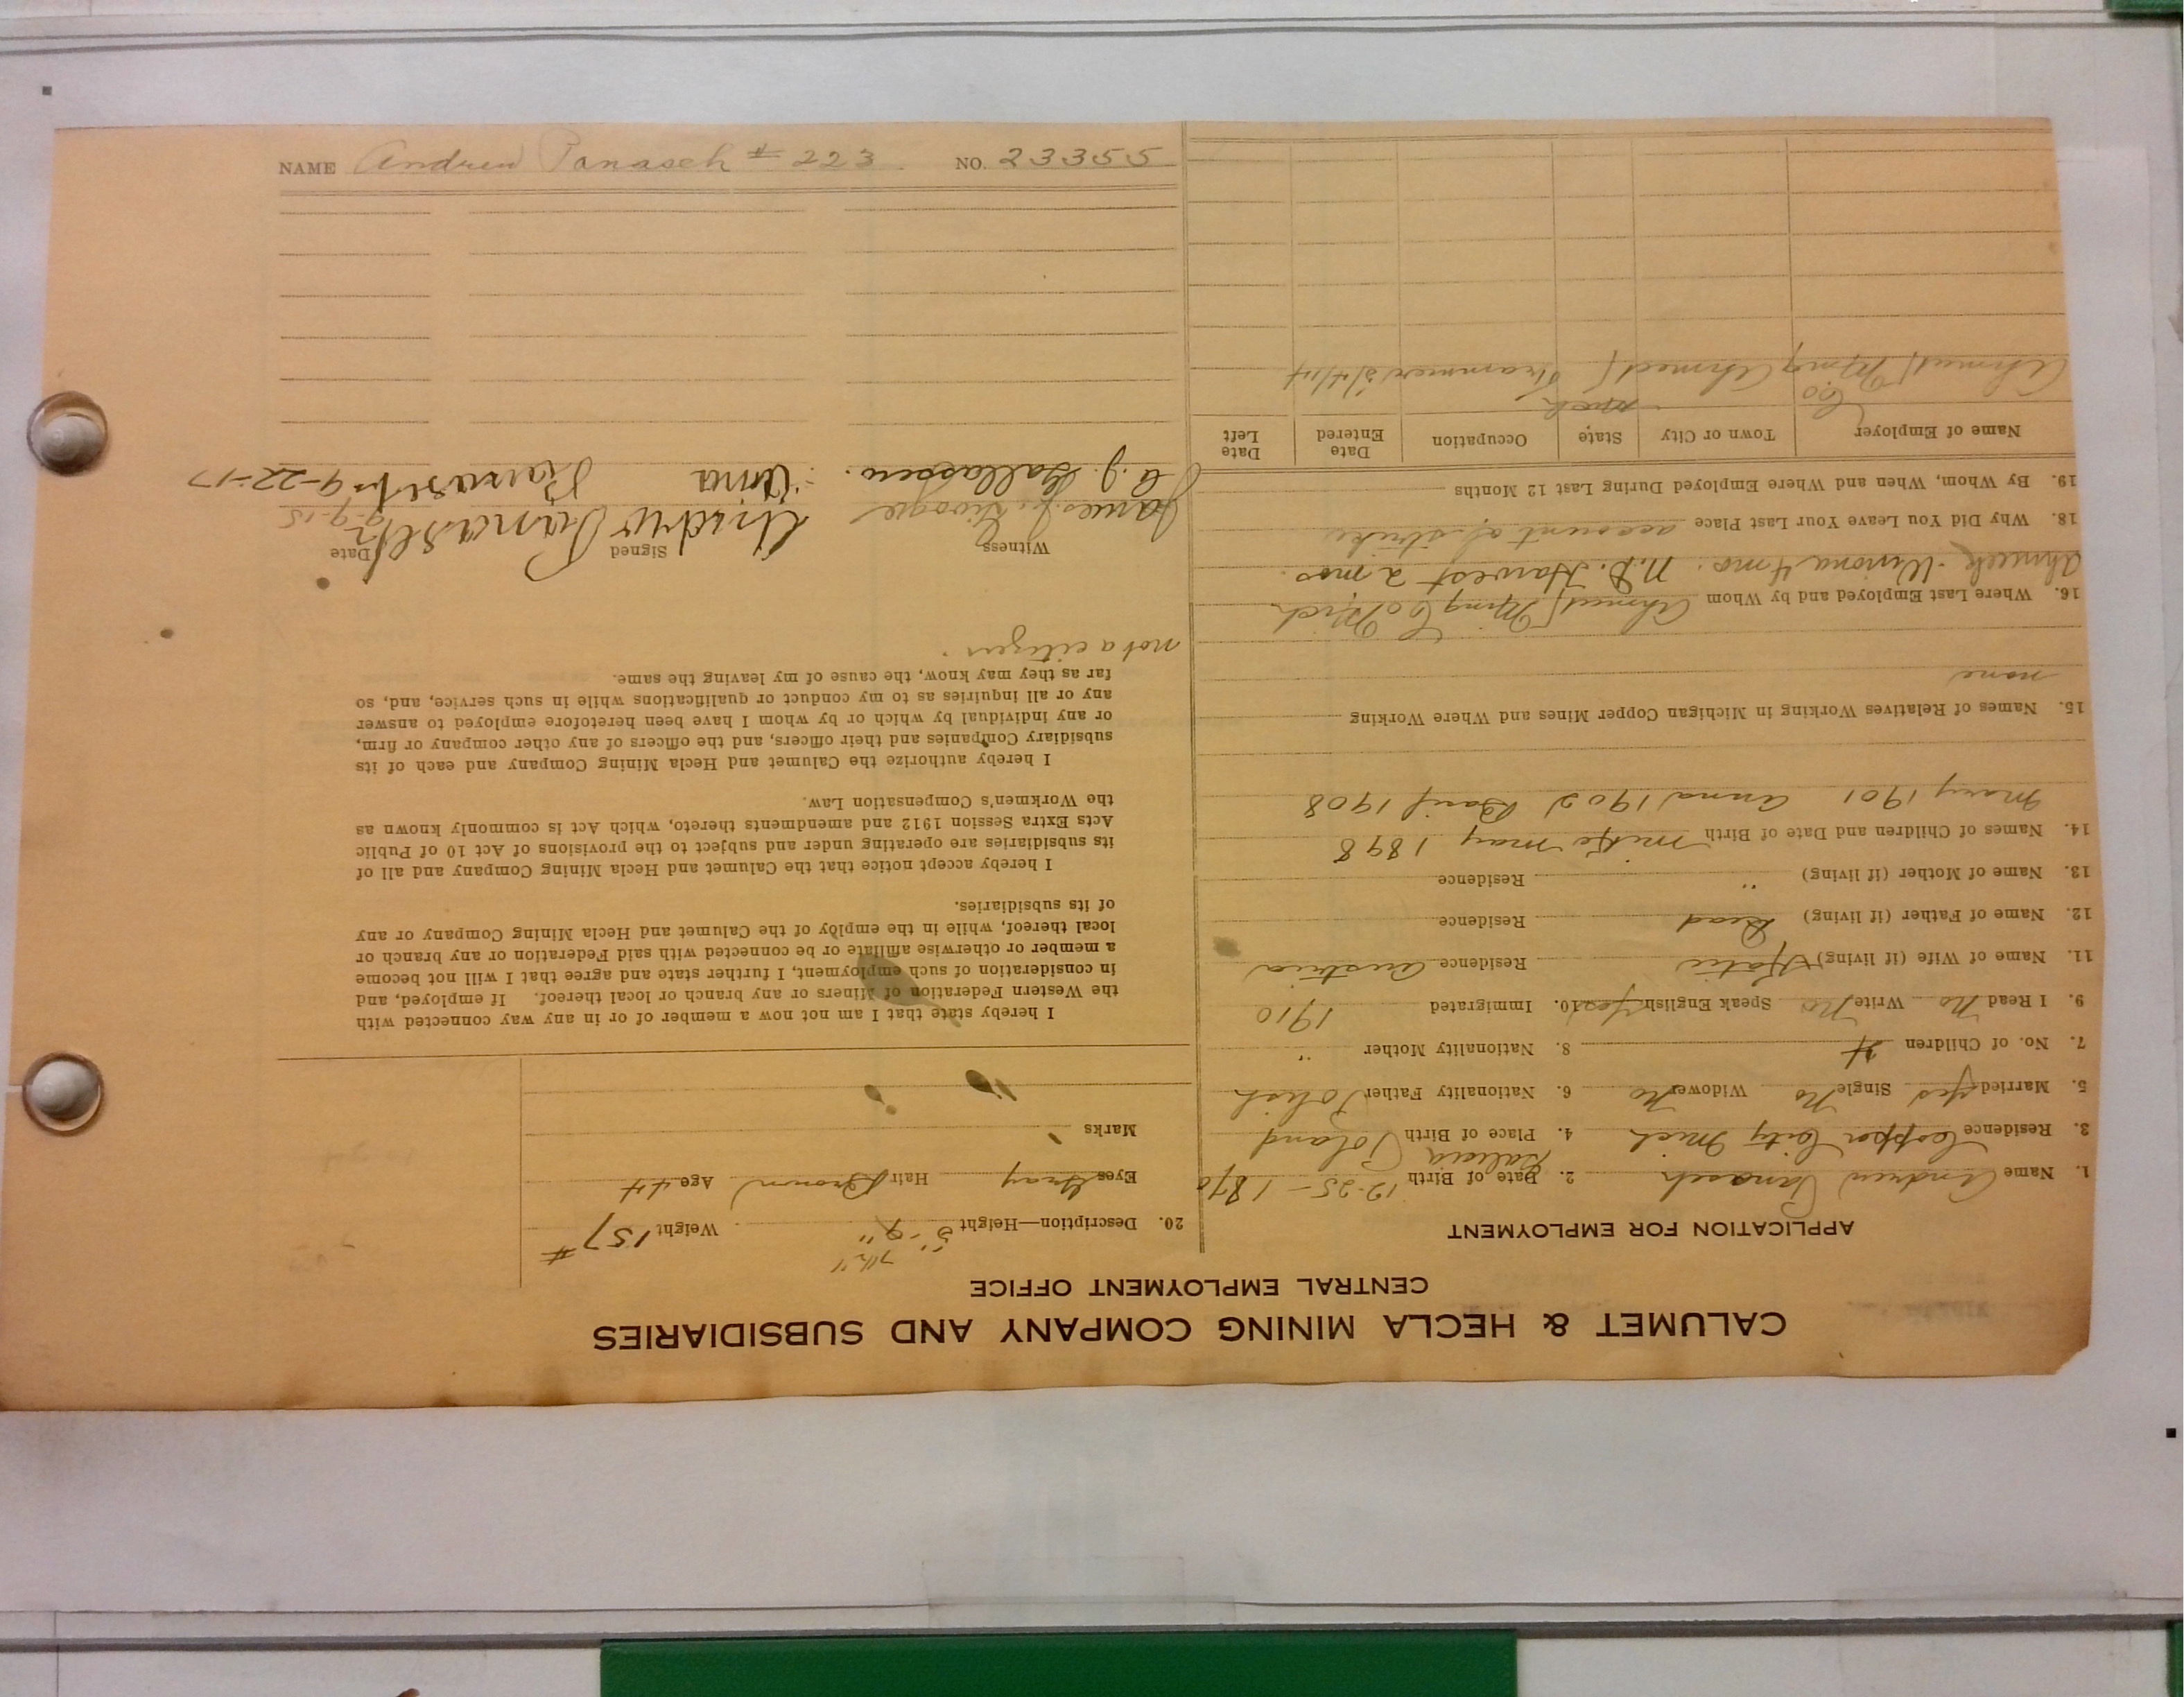 CALUMET & HECLA MINING COMPANY AND SUBSIDIARIES
CENTRAL EMPLOYMENT OFFICE
APPLICATION FOR EMPLOYMENT
1. Name Andrew Panasch 2. Date of Birth 12-25-1870
3. Residence Copper City Mich 4. Place of Birth Galicia Poland
5. Married Yes Single No Widower No 6. Nationality Father Polish
7. No. of Children 4 8. Nationality Mother "
9. I Read No Write No Speak English Yes 10. Immigrated 1910
11. Name of Wife (if living) Katie Residence Austria
12. Name of Father (if living) Dead Residence
13. Name of Mother (if living) " Residence
14. Names of Children and Date of Birth Mike May 1898
Mary 1901 Anna 1902 1908
15. Names of Relatives Working in Michigan Copper Mines and Where Working
none
16. Where Last Employed and by Whom Ahmeek Mng Co Mich
Ahmeek - Winona 4 mo. N.D. Harvest 2 mos.
18. Why Did You Leave Your Last Place account of strike
19. By Whom, When and Where Employed During Last 12 Months
Name of Employer Town or City State Occupation Date Entered Date Left
Ahmeek Mng Co Ahmeek Mich Trammer 3/4/14
20. Description—Height 5'-9" 7½" Weight 157#
Eyes Gray Hair Brown Age 44
Marks
I hereby state that I am not now a member of or in any way connected with
the Western Federation of Miners or any branch or local thereof. If employed, and
in consideration of such employment, I further state and agree that I will not become
a member or otherwise affiliate or be connected with said Federation or any branch or
local thereof, while in the employ of the Calumet and Hecla Mining Company or any
of its subsidiaries.
I hereby accept notice that the Calumet and Hecla Mining Company and all of
its subsidiaries are operating under and subject to the provisions of Act 10 of Public
Acts Extra Session 1912 and amendments thereto, which Act is commonly known as
the Workmen's Compensation Law.
I hereby authorize the Calumet and Hecla Mining Company and each of its
subsidiary Companies and their officers, and the officers of any other company or firm,
or any individual by which or by whom I have been heretofore employed to answer
any or all inquiries as to my conduct or qualifications while in such service, and, so
far as they may know, the cause of my leaving the same.
not a citizen.
Witness Signed Date
James J. Andrew Panasch 9-15
9-22-17
NAME Andrew Panasch # 223 NO. 23355